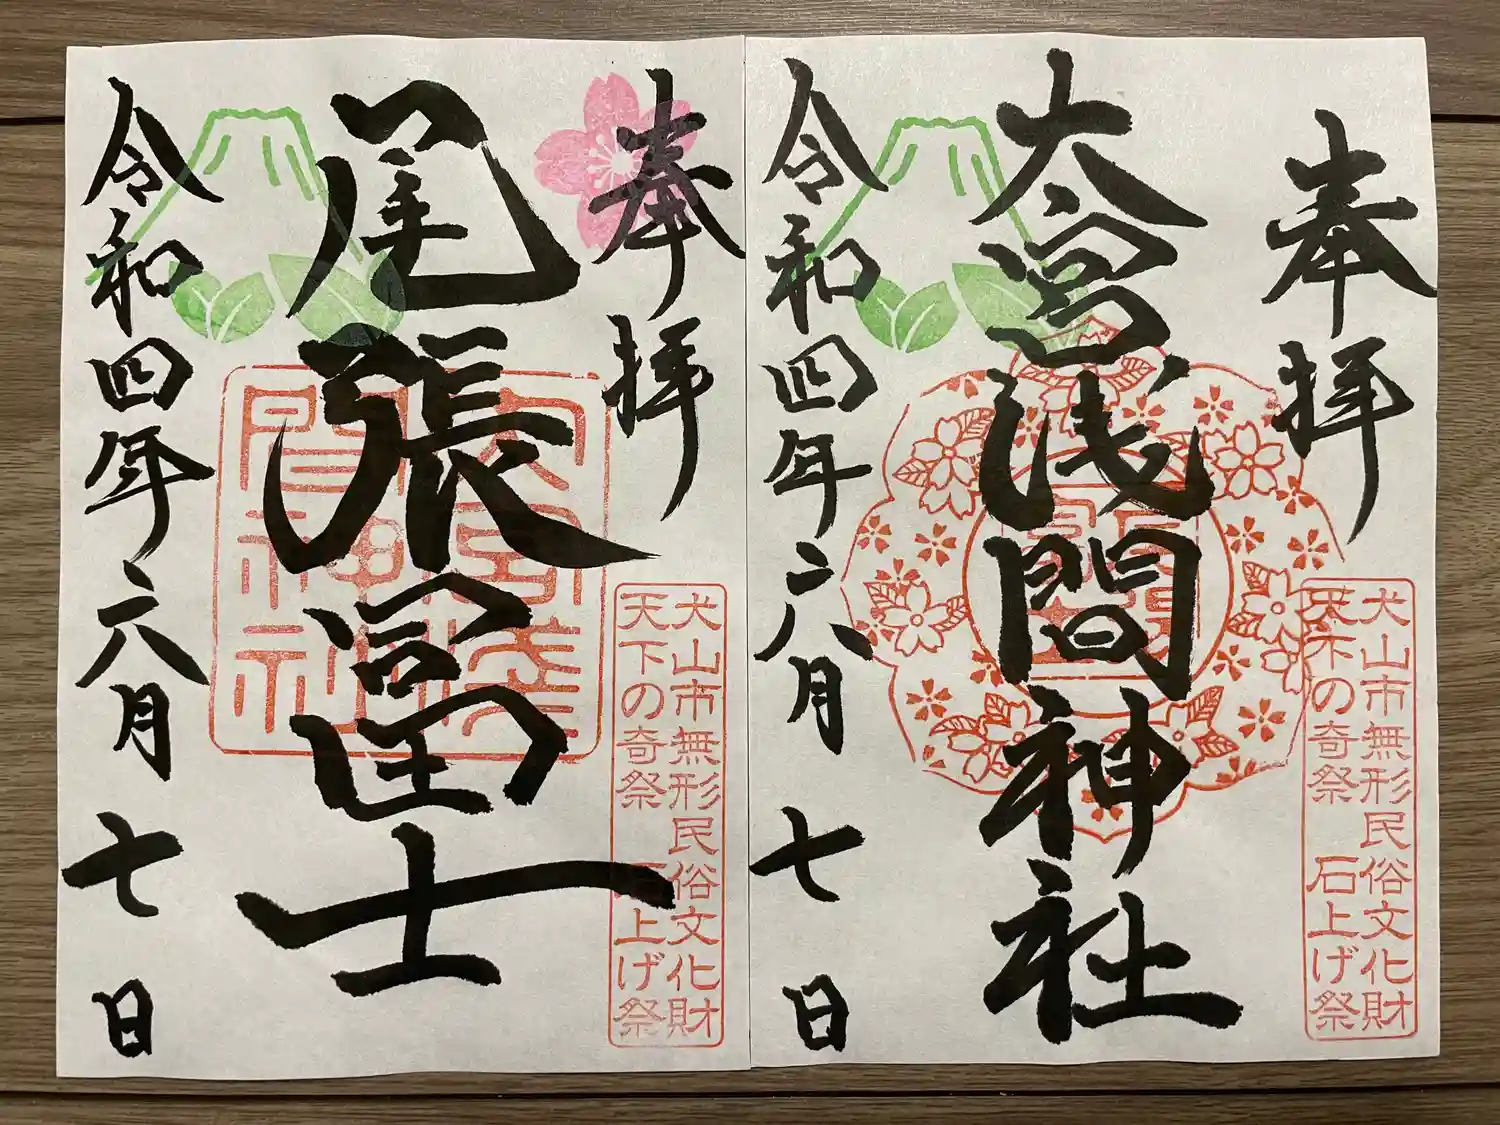 奉拝
大宮浅間神社
令和四年六月七日
犬山市無形民俗文化財
天下の奇祭 石上げ祭
奉拝
尾張冨士
令和四年六月七日
犬山市無形民俗文化財
天下の奇祭 石上げ祭
大宮浅
間神社